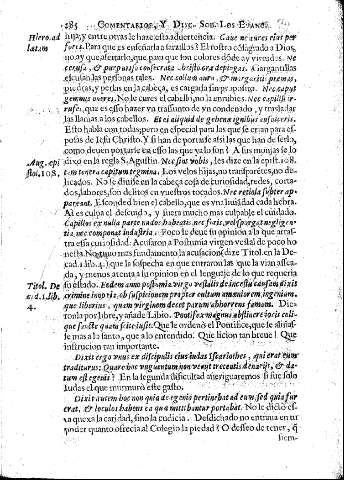 285 COMENTARIOS, Y DISC. SOB. LOS EVANG.
Hiero. ad
latam
hija, y entre otras le haze esta aduertencia. Caue ne aures eius per
fores. Para que es enseñarla a
El rostro cõsagrado a Dios,
no ay que afeytarlo, que para que son colores dõde ay virtudes. Ne
cerusa, & purpurisso consecrata Christo ora depingas. Y gargantillas
escusan las personas tales. Nec collum auro, & margaritis premas,
piedras, y perlas en la cabeça, es cargarla sin proposito. Nec caput
gemmis oneres. No le cures el cabello, no la enrubies. Nec capillũ
irrufes, que es esso hazer vn trassunto de vn condenado, y trasladar
las llamas a los cabellos. Et ei aliquid de gehennæ ignibus
Esto habla con todas, pero en especial para las que se crian para es-
posas de Iesu Christo. Y si han de portarse assi las que han de serlo,
como deuen portarse en esso las que ya lo son? A sus monjas se lo
Aug. epi
stol. 108.
dixo en la regla S. Agustin. Nec sint vobis, les dize en la epist. 108.
tam tenera capitum tegmina. Los velos hijas, no trasparẽtes, no de-
licados. No le diuise en la cabeça cosa de curiosidad, redes, corta-
dos, labores, son delitos en vuestros tocados. Nec retiola subter ap-
pareant. Esconded bien el cabello, que es vna liuiandad cada hebra.
Al es culpa el descuydo, y fuera mucho mas culpable el cuidado.
Capillos ex nulla parte nudos habeatis, nec foris, vel spargat negligen
tia, nec componat industria. Poco se deue su opinion a la que arras-
tra essa curiosidad. Acusaron a Postumia virgen vestal de poco ho
nesta. No tuuo mas fundamento la acusacion (dize Titol. en la De-
cad. 1. lib. 4.) que la sospecha en que entraron las que la vian assea-
da, y menos atenta a su opinion en el lenguaje de lo que requeria
Titol. De
cad. 1. Lib.
4.
su estado. Eodem anno postumia virgo vestalis de incestu causam dixit
crimine innoxia, ob suspitionem propter cultum amœniorem, ingenium,
que liberius, quam virginem decet parum abhorrens famam. Die-
ronla por libre, y añade Libio. Pontifex maximus abstinere iocis coli
que sancte quam scite iussit. Que le ordenò el Pontifice, que se aliñas-
se mas a lo santo, que a lo entendido. Que licion tan breue! Que
instrucion tan importante.
Dixit ergo vnus ex discipulis eius Iudas Iscariothes, qui erat eum
traditurus: Quare hoc vnguentum non venijt trecentis denarijs, & da-
tum est egenis? En la segunda dificultad aueriguaremos si fue solo
Iudas el que murmurò este gasto.
Dixit autem hoc non quia de egenis pertinebat ad eum, sed quia fur
erat, & loculos habens ea quæ mittebantur portabat. No le diò es-
sa quexa la caridad, sino la cudicia. Desdichado no entraua en tu
poder quanto ofrecia al Colegio la piedad? O desseo de tener, q̃
siem-